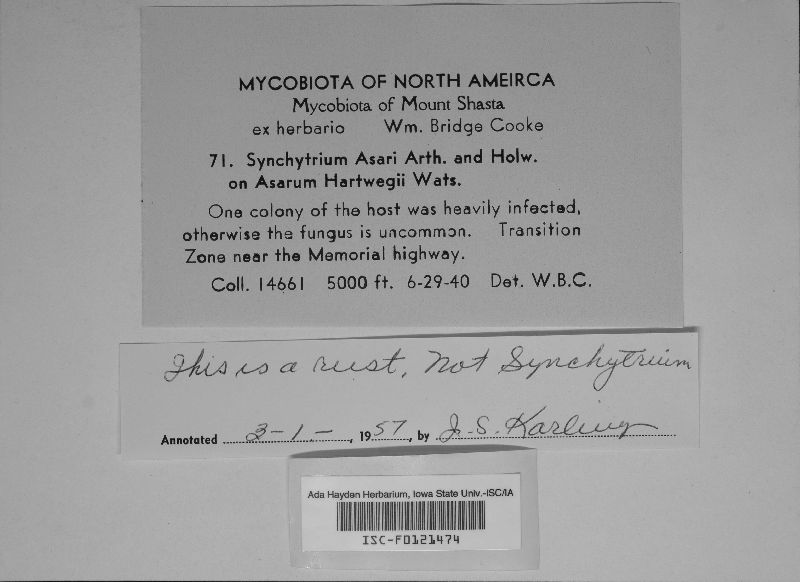 MYCOBIOTA OF NORTH AMEIRCA
Mycobiota of Mount Shasta
ex herbario Wm. Bridge Cooke
71. Synchytrium Asari Arth. and Holw.
on Asarum Hartwegii Wats.
One colony of the host was heavily infected,
otherwise the fungus is uncommon. Transition
Zone near the Memorial highway.
Coll. 14661 5000 ft. 6-29-40 Det. W.B.C.
This is a rust, Not Synchytrium
Annotated 3-1-, 1957, by J. S. Karling
Ada Hayden Herbarium, Iowa State Univ.-ISC/IA
ISC-F0121474